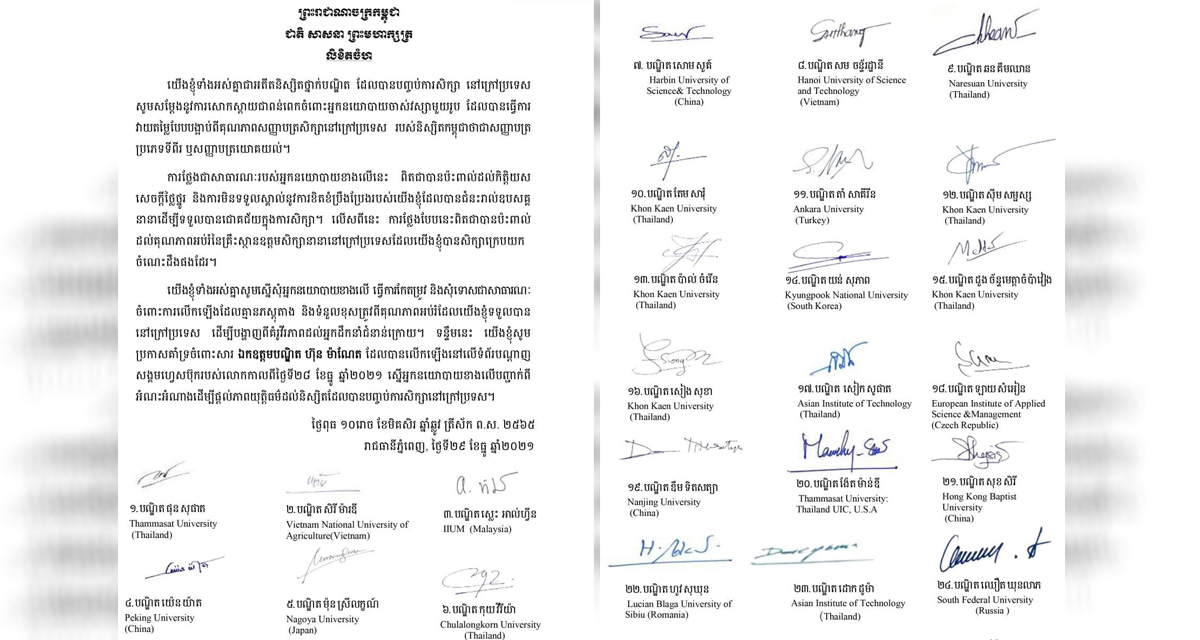 ព្រះរាជាណាចក្រកម្ពុជា
ជាតិ សាសនា ព្រះមហាក្សត្រ
លិខិតចំហ
យើងខ្ញុំទាំងអស់គ្នាជាអតីតនិស្សិតថ្នាក់បណ្ឌិត ដែលបានបញ្ចប់ការសិក្សា នៅក្រៅប្រទេស
សូមសម្តែងនូវការសោកស្តាយជាពន់ពេកចំពោះអ្នកនយោបាយចាស់វស្សាមួយរូប ដែលបានធ្វើការ
វាយតម្លៃបែបបង្អាប់ពីគុណភាពសញ្ញាបត្រសិក្សានៅក្រៅប្រទេស របស់និស្សិតកម្ពុជាថាជាសញ្ញាបត្រ
ប្រភេទទីពីរ ឬសញ្ញាបត្រយោគយល់។
ការថ្លែងជាសាធារណៈរបស់អ្នកនយោបាយខាងលើនេះ ពិតជាបានប៉ះពាល់ដល់កិត្តិយស
សេចក្តីថ្លៃថ្នូរ និងការមិនទទួលស្គាល់នូវការខិតខំប្រឹងប្រែងរបស់យើងខ្ញុំដែលបានជំនះរាល់ឧបសគ្គ
នានាដើម្បីទទួលបានជោគជ័យក្នុងការសិក្សា។ លើសពីនេះ ការថ្លែងបែបនេះពិតជាបានប៉ះពាល់
ដល់គុណភាពអប់រំនៃគ្រឹះស្ថានឧត្តមសិក្សានានានៅក្រៅប្រទេសដែលយើងខ្ញុំបានសិក្សាក្រេបយក
ចំណេះដឹងផងដែរ។
យើងខ្ញុំទាំងអស់គ្នាសូមស្នើសុំអ្នកនយោបាយខាងលើ ធ្វើការកែតម្រូវ និងសុំទោសជាសាធារណៈ
ចំពោះការលើកឡើងដែលគ្មានភស្តុតាង និងទំនួលខុសត្រូវពីគុណភាពអប់រំដែលយើងខ្ញុំទទួលបាន
នៅក្រៅប្រទេស ដើម្បីបង្ហាញពីគំរូវីរភាពដល់អ្នកដឹកនាំជំនាន់ក្រោយ។ ទន្ទឹមនេះ យើងខ្ញុំសូម
ប្រកាសគាំទ្រចំពោះសារ ឯកឧត្តមបណ្ឌិត ហ៊ុន ម៉ាណែត ដែលបានលើកឡើងនៅលើទំព័របណ្តាញ
សង្គមហ្វេសប៊ុករបស់លោកកាលពីថ្ងៃទី២៨ ខែធ្នូ ឆ្នាំ២០២១ ស្នើអ្នកនយោបាយខាងលើបញ្ជាក់ពី
អំណះអំណាងដើម្បីផ្តល់ភាពយុត្តិធម៌ដល់និស្សិតដែលបានបញ្ចប់ការសិក្សានៅក្រៅប្រទេស។
ថ្ងៃពុធ ១០រោច ខែមិគសិរ ឆ្នាំឆ្លូវ ត្រីស័ក ព.ស. ២៥៦៥
រាជធានីភ្នំពេញ, ថ្ងៃទី២៩ ខែធ្នូ ឆ្នាំ២០២១
១.បណ្ឌិត ផុន សុផាត
Thammasat University
(Thailand)
២.បណ្ឌិត សិរី ម៉ារឌី
Vietnam National University of
Agriculture(Vietnam)
៣.បណ្ឌិត ស្លេះ អាល់ហ្វីន
IIUM (Malaysia)
៤.បណ្ឌិត យ៉េន យ៉ាត
Peking University
(China)
៥.បណ្ឌិត ម៉ុន ស្រីលក្ខណ៍
Nagoya University
(Japan)
៦.បណ្ឌិត កុយ វីរីយ៉ា
Chulalongkorn University
(Thailand)
៧. បណ្ឌិត សោម សូត៌
Harbin University of
Science& Technology
(China)
៨.បណ្ឌិត សម ចន្ទ័រដ្ឋានី
Hanoi University of Science
and Technology
(Vietnam)
៩.បណ្ឌិត ឆនគឹមឈាន
Naresuan University
(Thailand)
១០.បណ្ឌិត តែម សារុំ
Khon Kaen University
(Thailand)
១១.បណ្ឌិត តាំ សាគីរីន
Ankara University
(Turkey)
១២.បណ្ឌិត ស៊ឹម សម្បស្ស
Khon Kaen University
(Thailand)
១៣.បណ្ឌិត ប៉ាល់ ចំរើន
Khon Kaen University
(Thailand)
១៤.បណ្ឌិត យន់ សុភាព
Kyungpook National University
(South Korea)
១៥.បណ្ឌិត ដួង ច័ន្ទមេត្តាចំប៉ាវៀង
Khon Kaen University
(Thailand)
១៦.បណ្ឌិត សៀង សុខា
Khon Kaen University
(Thailand)
១៧.បណ្ឌិត សៀក សុផាត
Asian Institute of Technology
(Thailand)
១៨.បណ្ឌិត ឡាយ សំអៀន
European Institute of Applied
Science &Management
(Czech Republic)
១៩.បណ្ឌិត ឌឹម ទិតសត្យា
Nanjing University
(China)
២០.បណ្ឌិត ង៉ែត ម៉ាន់ឌី
Thammasat University:
Thailand UIC, U.S.A
២១.បណ្ឌិត សុខ សិរី
Hong Kong Baptist
University
(China)
២២.បណ្ឌិត ហូវ សុឃុន
Lucian Blaga University of
Sibiu (Romania)
២៣.បណ្ឌិត ដោក ដូម៉ា
Asian Institute of Technology
(Thailand)
២៤.បណ្ឌិត ឈឿត ឃុនលាភ
South Federal University
(Russia )